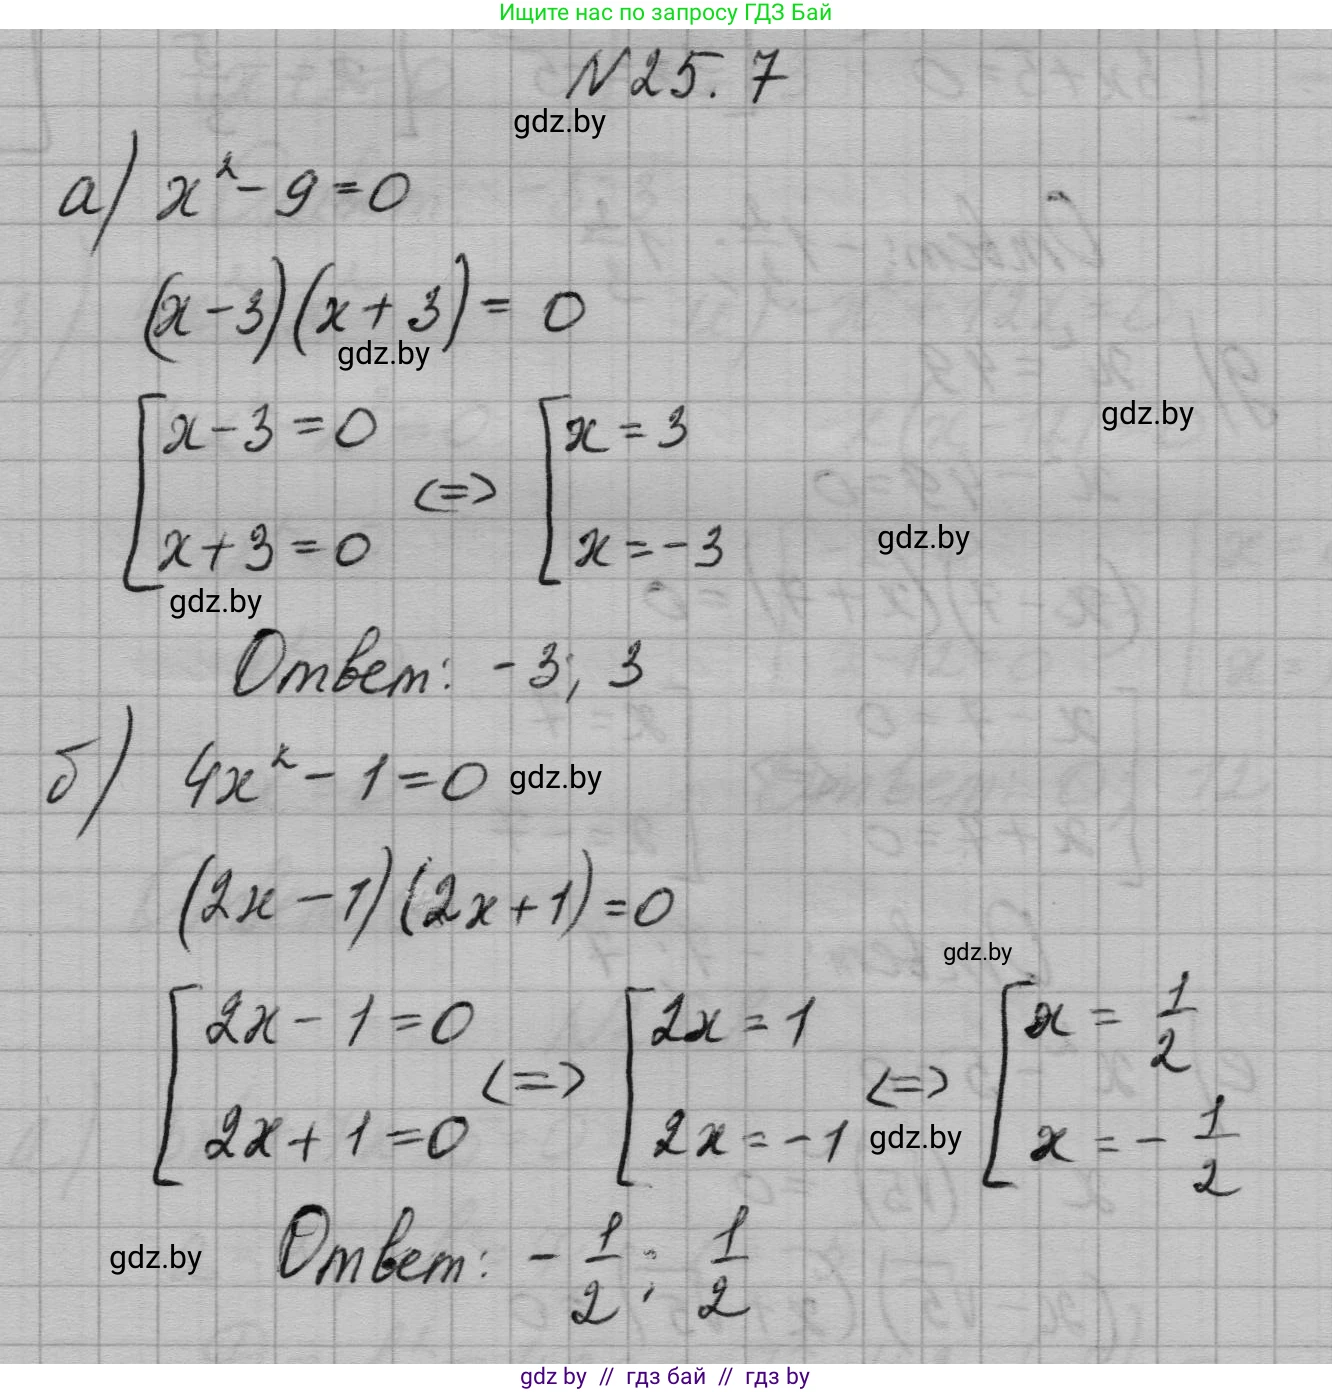 Ищите нас по запросу ГДЗ Бай
N 25. 7
gdz.by
а) x² - 9 = 0
(x - 3)(x + 3) = 0
gdz.by
[ x - 3 = 0 <=> [ x = 3
gdz.by
x + 3 = 0 x = -3
gdz.by
gdz.by
Ответ: -3; 3
б) 4x² - 1 = 0 gdz.by
(2x - 1)(2x + 1) = 0
gdz.by
[ 2x - 1 = 0 <=> [ 2x = 1 <=> [ x = 1/2
2x + 1 = 0 2x = -1 gdz.by x = - 1/2
gdz.by Ответ: - 1/2; 1/2
gdz by // гдз бай // гдз by